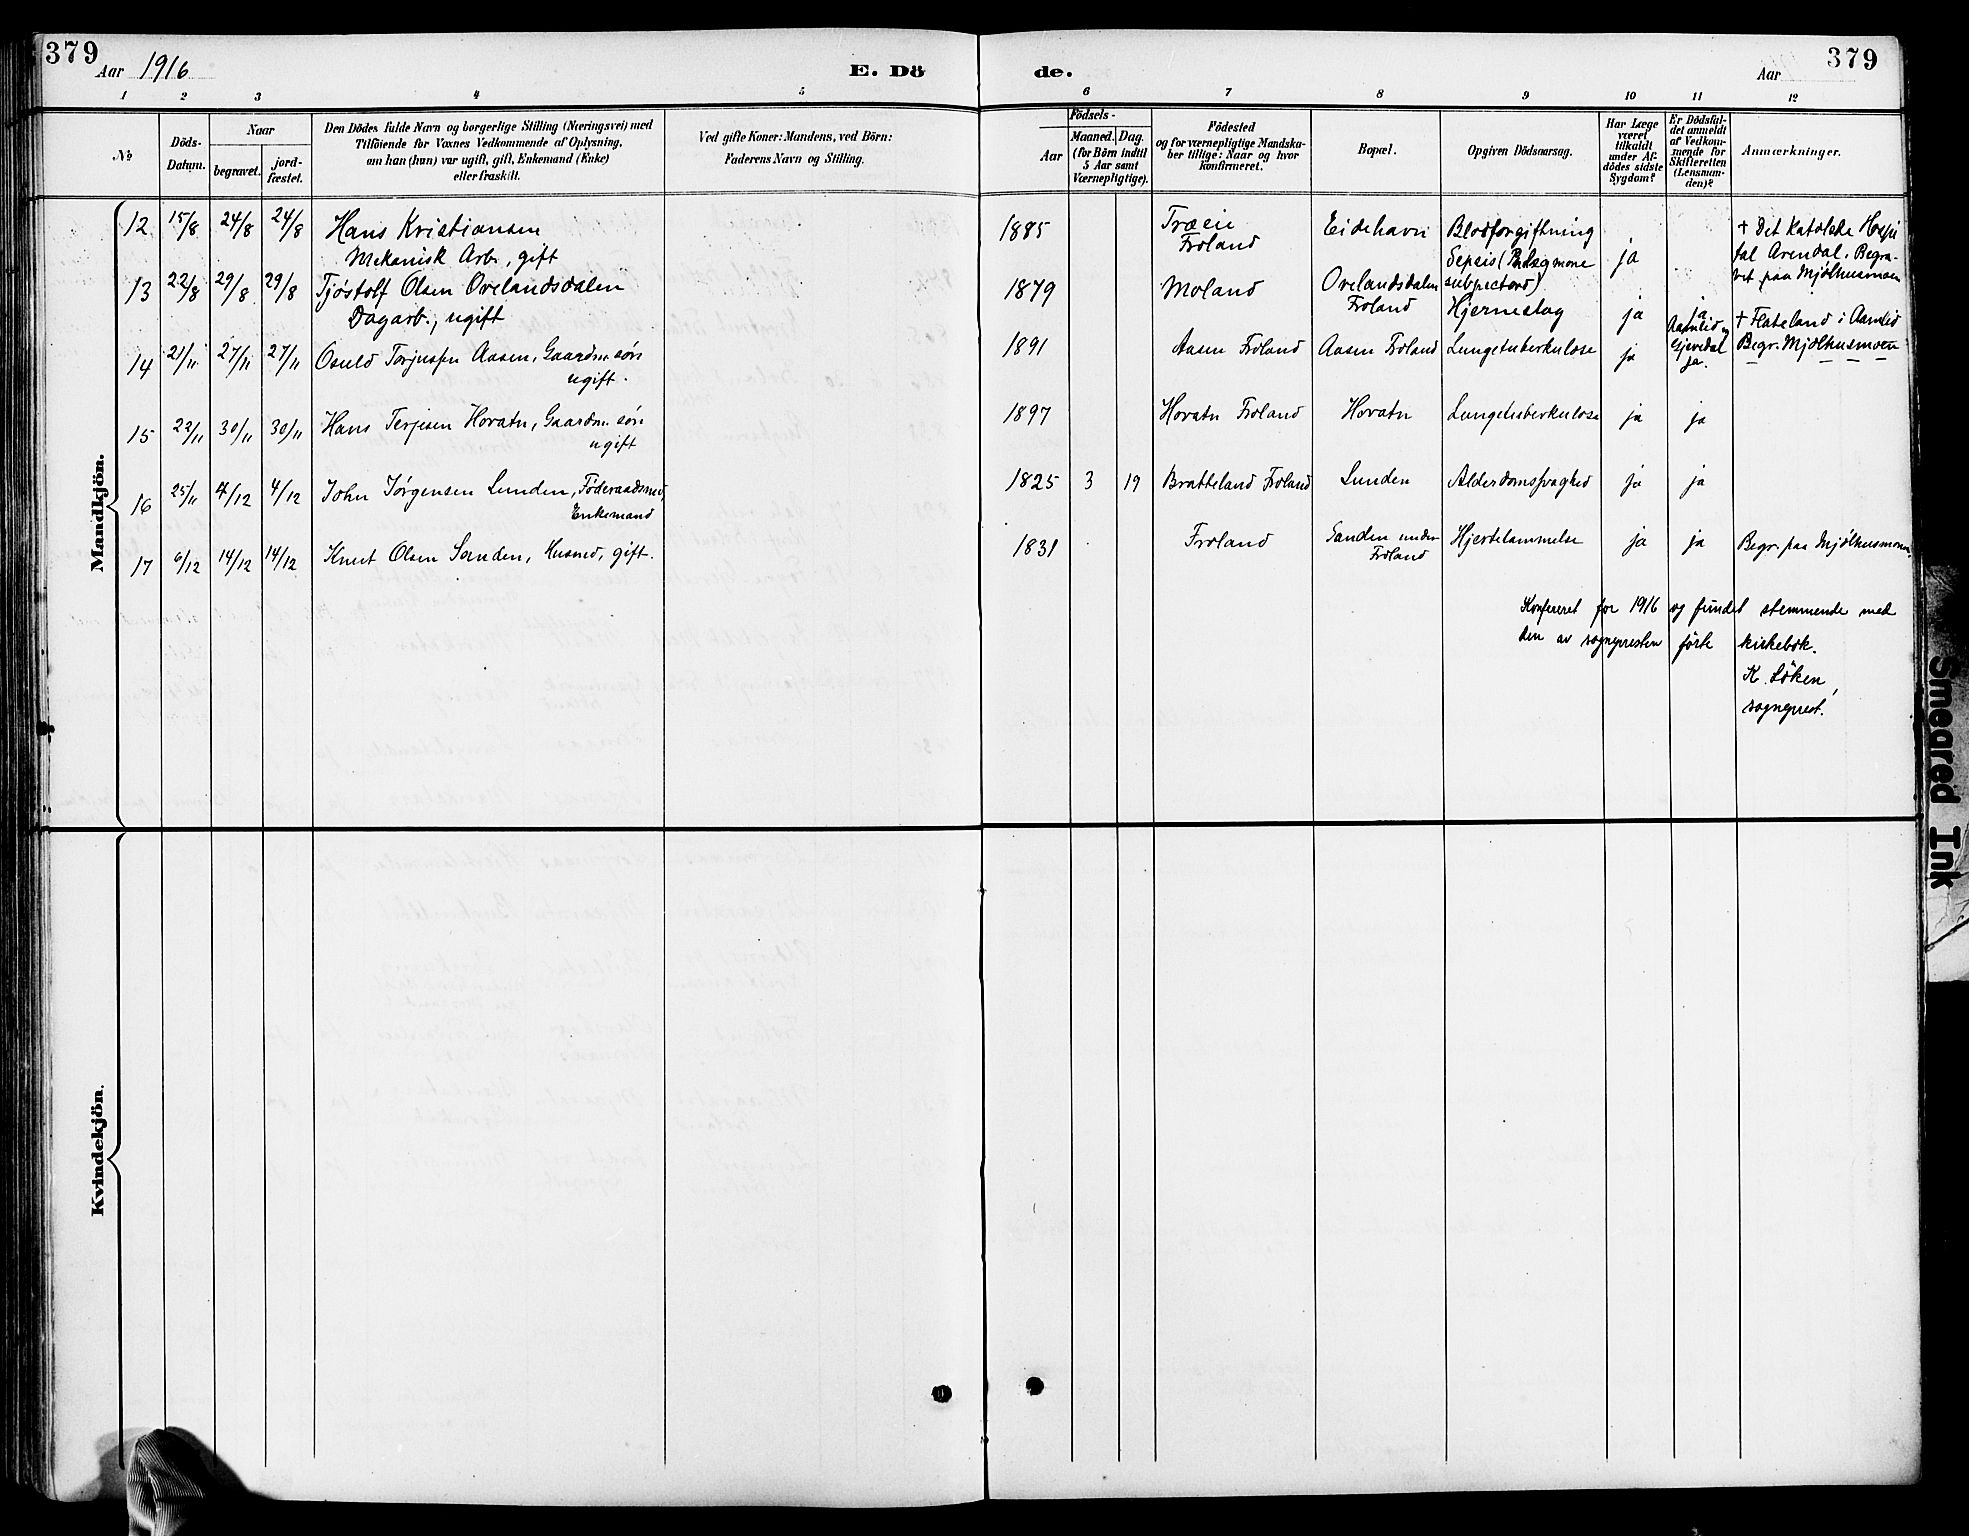 379
Aar 1916
E. Dö
de.
Aar
379
1 2 3 4 5 6 7 8 9 10 11 12
No
Döds-
Datum.
Naar
begravet.
jord-
fæstet.
Den Dödes fulde Navn og borgerlige Stilling (Næringsvei) med
Tilföiende for Voxnes Vedkommende af Oplysning,
om han (hun) var ugift, gift, Enkemand (Enke)
eller fraskilt.
Ved gifte Koner: Mandens, ved Börn:
Faderens Navn og Stilling.
Födsels-
Aar
Maaned. Dag.
(for Börn indtil
5 Aar samt
Værnepligtige).
Födested
og for værnepligtige Mandska-
ber tillige: Naar og hvor
konfirmeret.
Bopæl.
Opgiven Dödsaarsag.
Har Læge
været
tilkaldt
under Af-
dödes sidste
Sygdom?
Er Dödsfal-
det anmeldt
af Vedkom-
mende for
Skifteretten
(Lensman-
den)?
Anmærkninger.
Mandkjön.
12 15/8 24/8 24/8 Hans Kristiansen
Mekanisk Arb., gift
1885 Træeie
Froland
Eidehavn
Blodforgiftning
Sepsis
ja
+ Det katolske Hospi
tal Arendal. Begra-
vet paa Mjølhusmoen
13 22/8 29/8 29/8 Tjøstolf Olsen Ovelandsdalen
Dagarb., ugift
1879 Moland
Ovelandsdalen
Froland
Hjerneslag
ja
ja
14 21/11 27/11 27/11 Osuld Torjusen Aasen, Gaardm. søn
ugift.
1891 Aasen Froland Aasen Froland Lungetuberkulose ja
Aamlid
Gjøvdal
ja.
+ Flateland i Aamlid
Begr. Mjølhusmoen
15 22/11 30/11 30/11 Hans Terjesen Hovatn, Gaardm. søn
ugift
1897 Hovatn Froland Hovatn Lungetuberkulose ja ja
16 25/11 4/12 4/12 John Jørgensen Lunden, Føderaadsmd,
Enkemand
1825 3 19 Bratteland Froland Lunden Alderdomssvaghed ja ja
17 6/12 14/12 14/12 Knut Olsen Sanden, Husmd, gift.
1831 Froland Sanden under
Froland
Hjertelammelse ja ja Begr. paa Mjølhusmoen.
Konfereret for 1916 og fundet stemmende med
den av sogneprsten førte kirkebok.
K. Löken,
sogneprest.
Kvindekjön.
Smeared Ink